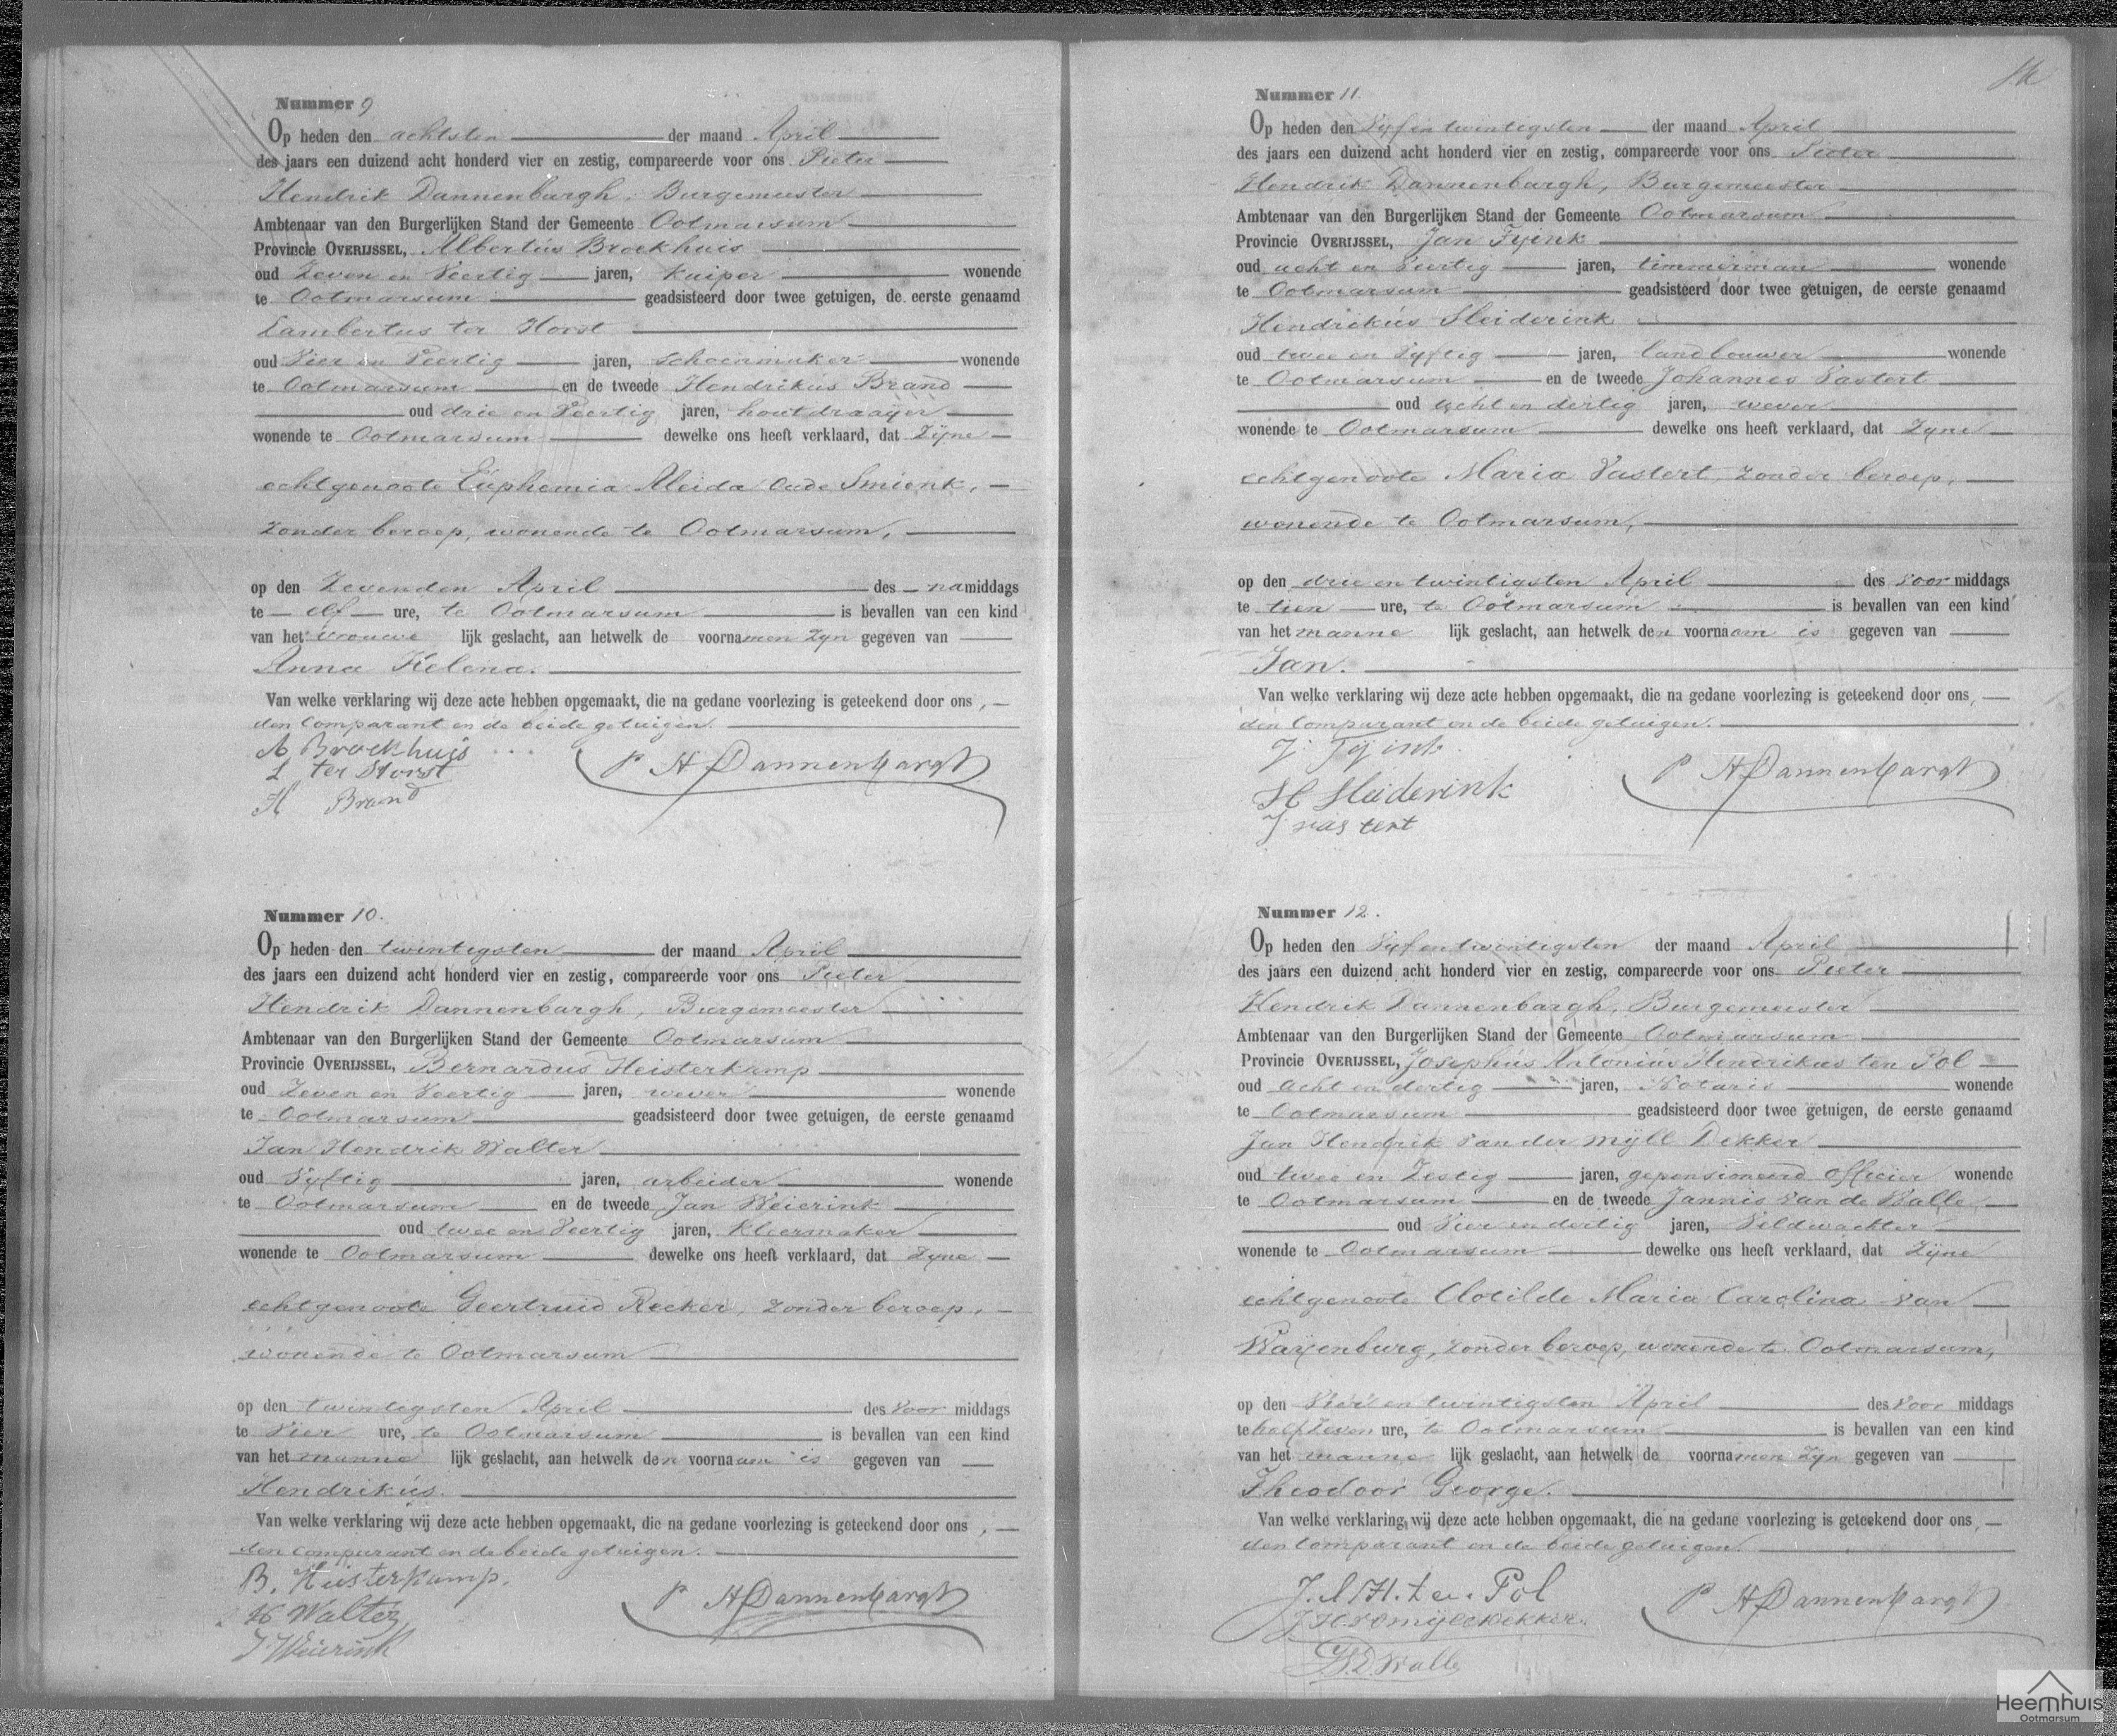 Nummer 9
Op heden den achtsten der maand April
des jaars een duizend acht honderd vier en zestig, compareerde voor ons Pieter
Hendrik Dannenbargh, Burgemeester
Ambtenaar van den Burgerlijken Stand der Gemeente Ootmarsum
Provincie OVERIJSSEL, Albertus Broekhuis
oud Zeven en Veertig jaren, Kuiper wonende
te Ootmarsum geadsisteerd door twee getuigen, de eerste genaamd
Lambertus ter Horst
oud Vier en Veertig jaren, schoenmaker wonende
te Ootmarsum en de tweede Hendrikus Brand
oud drie en Veertig jaren, houtdraayer
wonende te Ootmarsum dewelke ons heeft verklaard, dat Zyne
echtgenoote Euphemia Aleida Oude Smienk,
zonder beroep, wonende te Ootmarsum,
op den Zevenden April des namiddags
te elf ure, te Ootmarsum is bevallen van een kind
van het vrouwelijk geslacht, aan hetwelk de voornamen Zyn gegeven van
Anna Helena.
Van welke verklaring wij deze acte hebben opgemaakt, die na gedane voorlezing is geteekend door ons,
den Comparant en de beide getuigen.
A Broekhuis
L ter Horst
H Brand
P H Dannenbargh
Nummer 10.
Op heden den twintigsten der maand April
des jaars een duizend acht honderd vier en zestig, compareerde voor ons Pieter
Hendrik Dannenbargh, Burgemeester
Ambtenaar van den Burgerlijken Stand der Gemeente Ootmarsum
Provincie OVERIJSSEL, Bernardus Heisterkamp
oud Zeven en Veertig jaren, wever wonende
te Ootmarsum geadsisteerd door twee getuigen, de eerste genaamd
Jan Hendrik Walter
oud Vyftig jaren, arbeider wonende
te Ootmarsum en de tweede Jan Weierink
oud twee en Veertig jaren, Kleermaker
wonende te Ootmarsum dewelke ons heeft verklaard, dat Zyne
echtgenoote Geertruid Reeker, zonder beroep,
wonende te Ootmarsum
op den twintigsten April des Voor middags
te Vier ure, te Ootmarsum is bevallen van een kind
van het mannelijk geslacht, aan hetwelk den voornaam is gegeven van
Hendrikus.
Van welke verklaring wij deze acte hebben opgemaakt, die na gedane voorlezing is geteekend door ons,
den comparant en de beide getuigen.
B. Heisterkamp.
H Walter
J Weierink
P H Dannenbargh
Nummer 11.
Op heden den Vyf en twintigsten der maand April
des jaars een duizend acht honderd vier en zestig, compareerde voor ons Pieter
Hendrik Dannenbargh, Burgemeester
Ambtenaar van den Burgerlijken Stand der Gemeente Ootmarsum
Provincie OVERIJSSEL, Jan Tyink
oud acht en Veertig jaren, timmerman wonende
te Ootmarsum geadsisteerd door twee getuigen, de eerste genaamd
Hendrikus Sleiderink
oud twee en Vyftig jaren, landbouwer wonende
te Ootmarsum en de tweede Johannes Vastert
oud acht en dertig jaren, wever
wonende te Ootmarsum dewelke ons heeft verklaard, dat Zyne
echtgenoote Maria Vastert, zonder beroep,
wonende te Ootmarsum,
op den drie en twintigsten April des Voor middags
te tien ure, te Ootmarsum is bevallen van een kind
van het mannelijk geslacht, aan hetwelk den voornaam is gegeven van
Jan.
Van welke verklaring wij deze acte hebben opgemaakt, die na gedane voorlezing is geteekend door ons,
den Comparant en de beide getuigen.
J Tyink
H Sleiderink
J vastert
P H Dannenbargh
Nummer 12.
Op heden den Vyf en twintigsten der maand April
des jaars een duizend acht honderd vier en zestig, compareerde voor ons Pieter
Hendrik Dannenbargh, Burgemeester
Ambtenaar van den Burgerlijken Stand der Gemeente Ootmarsum
Provincie OVERIJSSEL, Josephus Antonius Hendrikus ten Pol
oud acht en dertig jaren, Notaris wonende
te Ootmarsum geadsisteerd door twee getuigen, de eerste genaamd
Jan Hendrik van der Mÿll Dekker
oud twee en Zestig jaren, gepensioneerd officier wonende
te Ootmarsum en de tweede Jannis van de Walle
oud Vier en dertig jaren, Veldwachter
wonende te Ootmarsum dewelke ons heeft verklaard, dat Zÿne
echtgenoote Clotilde Maria Carolina van
Wayenburg, zonder beroep, wonende te Ootmarsum,
op den Vier en twintigsten April des Voor middags
te half Zeven ure, te Ootmarsum is bevallen van een kind
van het mannelijk geslacht, aan hetwelk de voornamen Zyn gegeven van
Theodoor George.
Van welke verklaring wij deze acte hebben opgemaakt, die na gedane voorlezing is geteekend door ons,
den Comparant en de beide getuigen.
J.A.H. ten Pol
P H Dannenbargh
Heemhuis
Ootmarsum